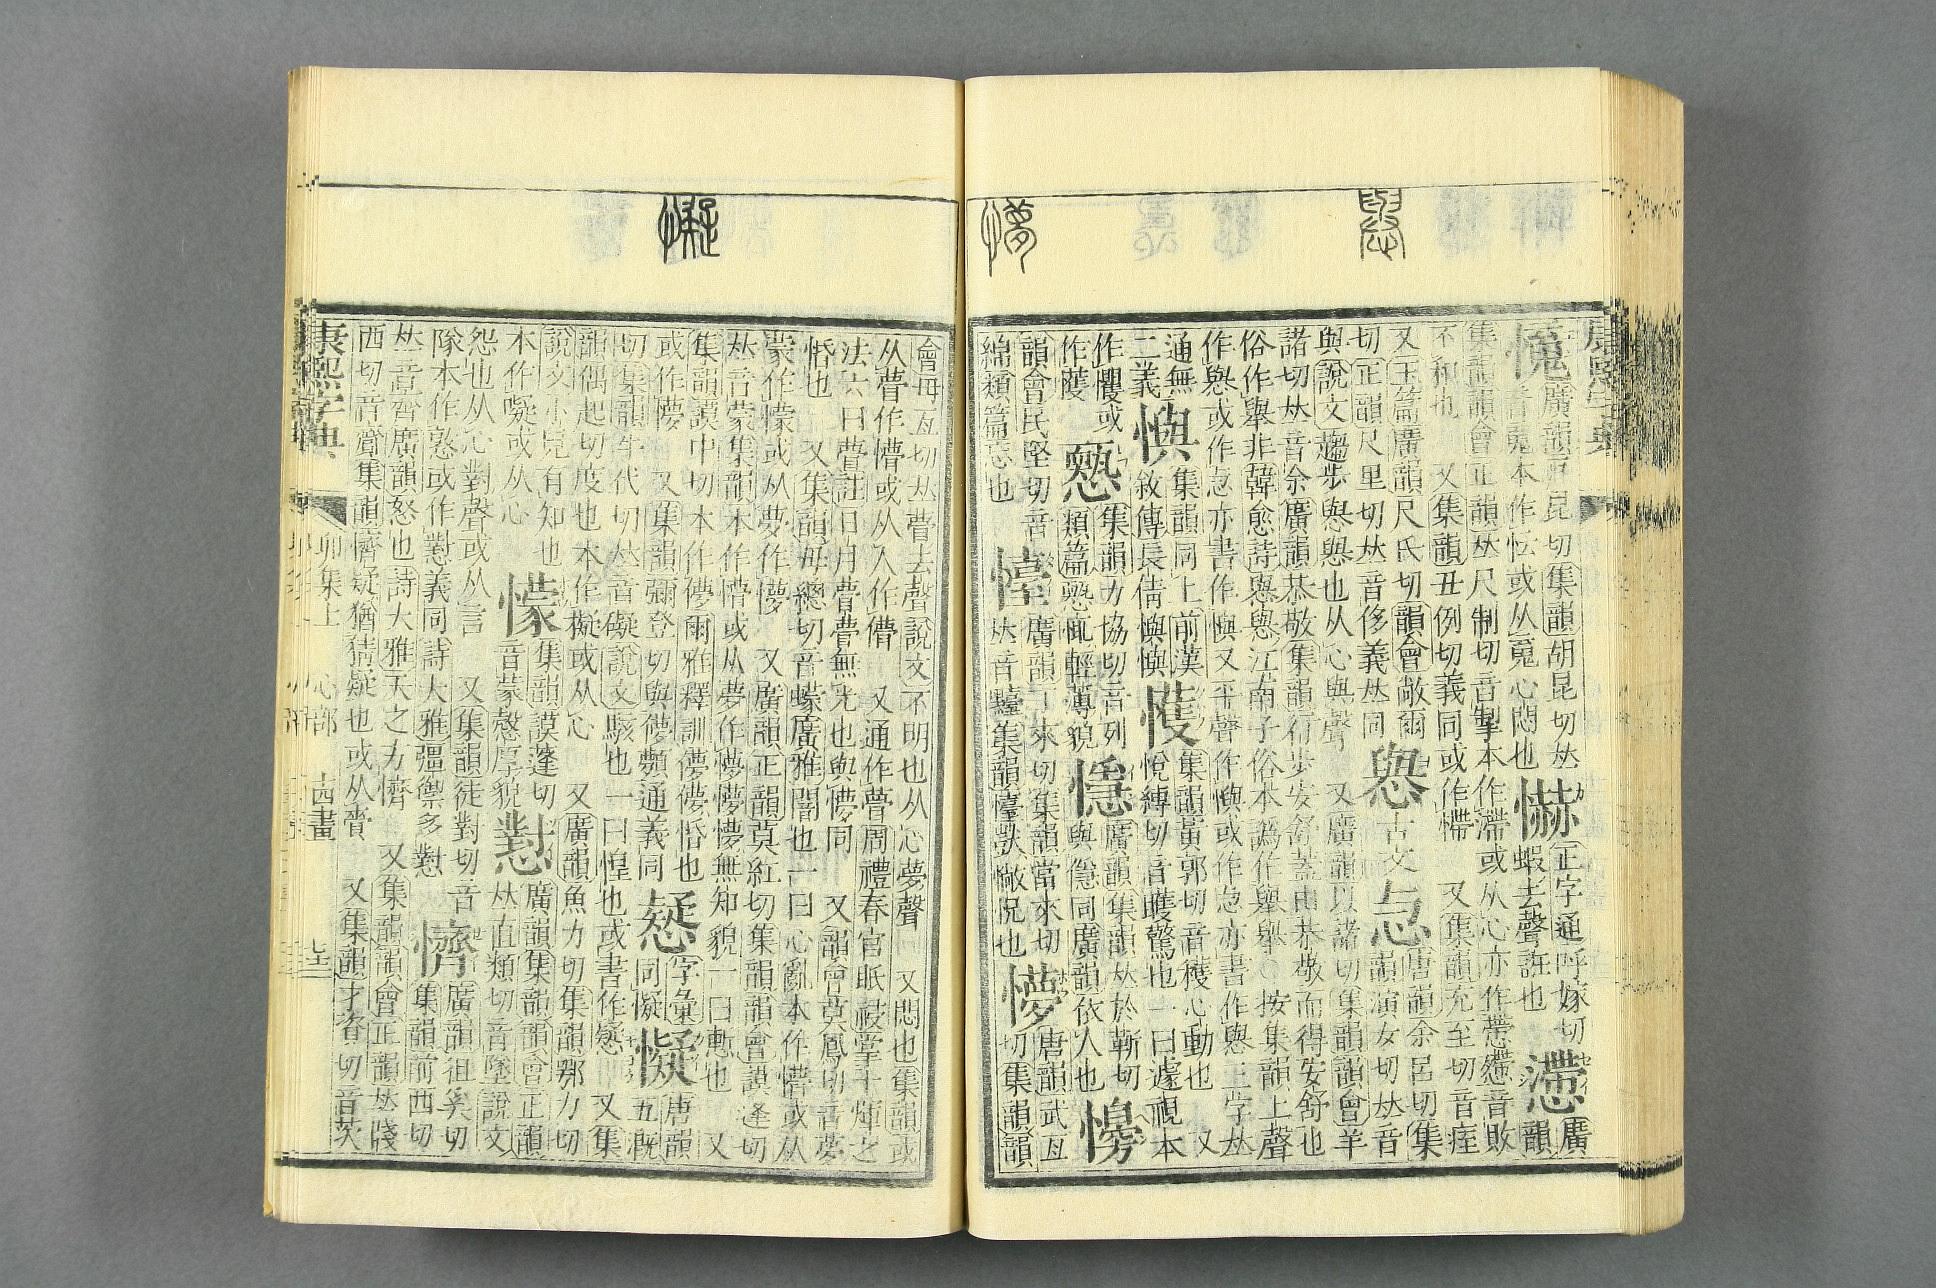 康熙字典
廣韻戸昆切集韻胡昆切𠀤
音䰟本作忶或从䰟心悶也
懗
正字通呼嫁切
蝦去聲誑也
懘
廣
韻
集韻韻會正韻𠀤尺制切音掣本作滯或从心亦作慸懘音敗
不和也 又集韻丑例切義同或作懘 又集韻充至切音痓
又玉篇廣韻尺氏切韻會敞爾
切正韻尺里切𠀤音侈義𠀤同
懇
古文
唐韻余呂切集
韻演女切𠀤音
與說文趨步懇懇也从心與聲 又廣韻以諸切集韻韻會羊
諸切𠀤音余廣韻恭敬集韻行步安舒蓋由恭敬而得安舒也
俗作舉非韓愈詩懇懇江南子俗本譌作舉舉○按集韻上聲
作懇或作㤤亦書作懙又平聲作懙或作㤤亦書作懇正字𠀤
通無
二義
懙
集韻同上前漢
敘傳長倩懙懙
㦜
集韻黃郭切音穫心動也 又
悅縛切音矆驚也一曰遽視本
作戄或
作蒦
集韻力協切音列
類篇㤠輕薄貌
㦩
廣韻集韻𠀤於蘄切
與㥯同廣韻依人也
韻會民堅切音
綿類篇忘也
懛
廣韻丁來切集韻當來切
𠀤音𪒴集韻懛獃失志貌
懜
唐韻武亙
切集韻韻
會母亙切𠀤瞢去聲說文不明也从心夢聲 又悶也集韻或
从瞢作懵或从人作儚 又通作瞢周禮春官眂祲掌十煇之
法六曰瞢註日月瞢瞢無光也與懜同 又韻會莫鳳切音夢
惛也 又集韻母總切音蠓廣雅闇也一曰心亂本作懵或从
蒙作懞或从夢作懜 又廣韻正韻莫紅切集韻韻會謨蓬切
𠀤音蒙集韻本作懵或从夢作懜懜懜無知貌一曰慙也 又
集韻謨中切本作儚爾雅釋訓儚儚惛也
或作懜 又集韻彌登切與㒱䫤通義同
字彙
同懝
懝
唐韻
五旣
切集韻牛代切𠀤音礙說文騃也一曰惶也或書作㦣 又集
韻偶起切度也本作擬或从心 又廣韻魚力切集韻鄂力切
說文小兒有知也
本作㘈或从心
懞
集韻謨蓬切
音蒙愨厚貌
懟
廣韻集韻韻會正韻
𠀤直類切音墜說文
怨也从心對聲或从言 又集韻徒對切音
隊本作憝或作懟義同詩大雅彊禦多懟
懠
廣韻徂奚切
集韻前西切
𠀤音齊廣韻怒也詩大雅天之方懠 又集韻韻會正韻𠀤牋
西切音齎集韻懠疑猶猜疑也或从賫 又集韻才資切音茨
康熙字典
卯集上
心部
十四畫